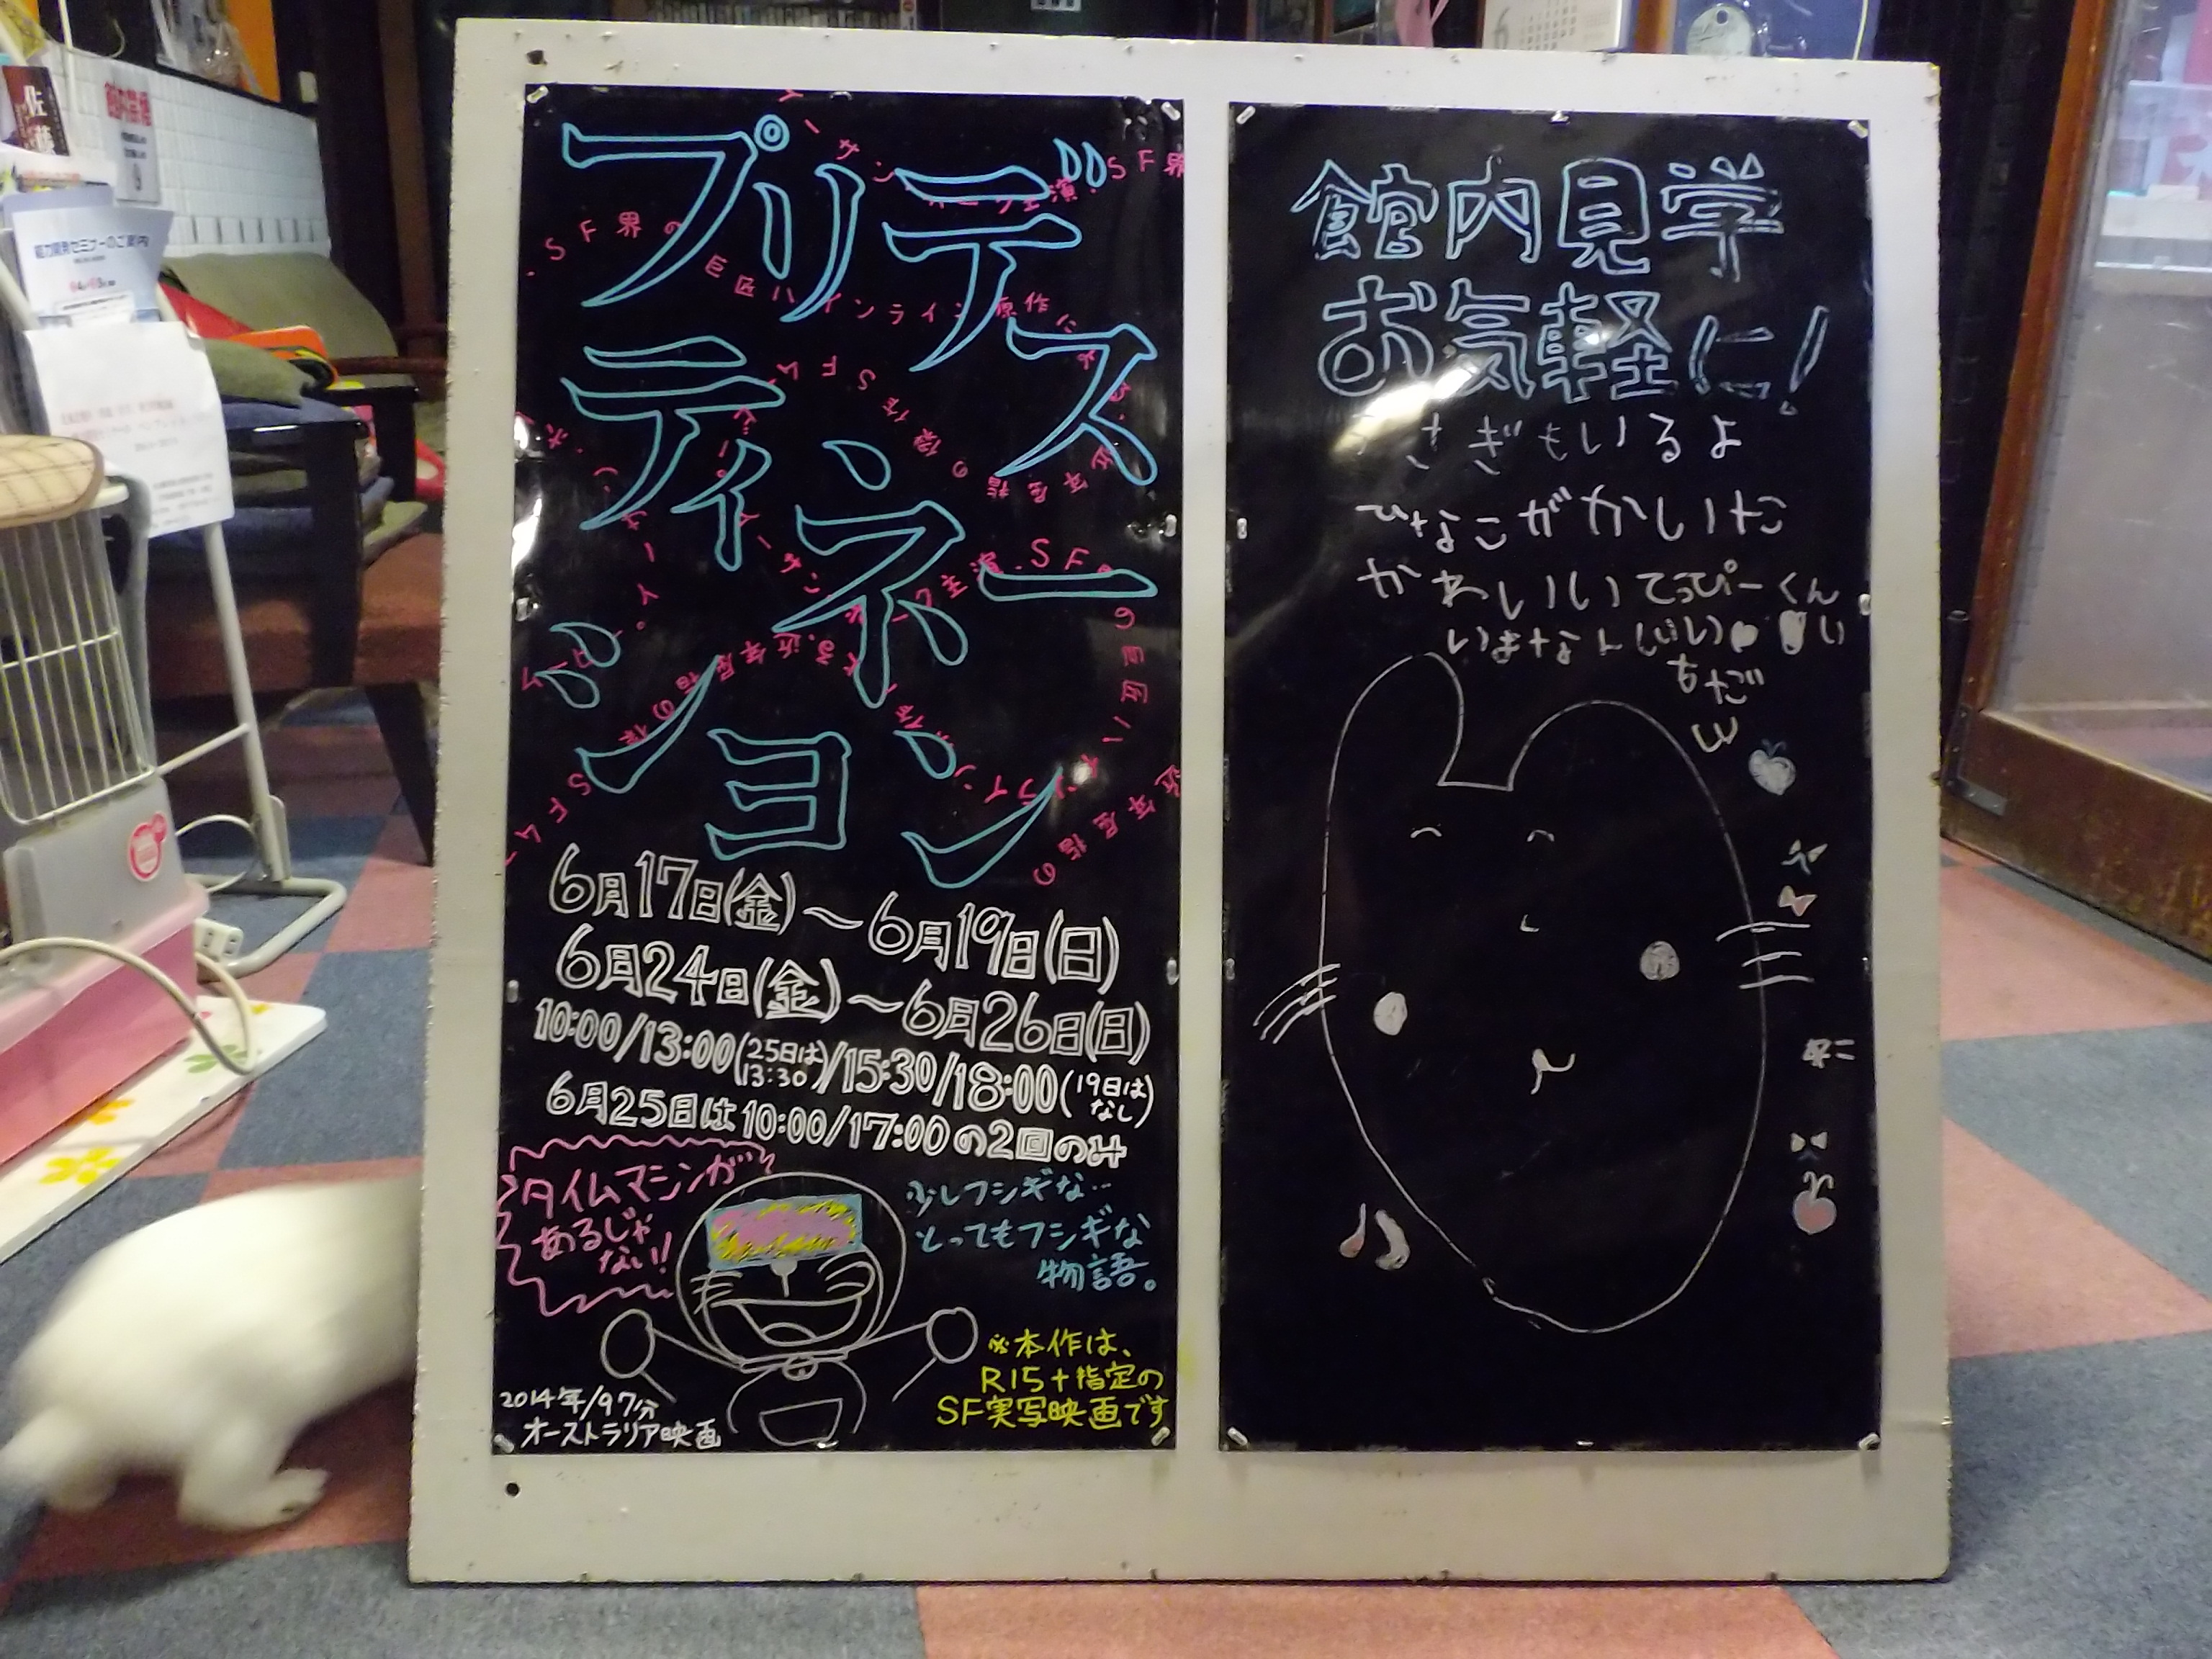 プリデス
ティネー
ション
SF界の巨匠ハインライン原作による近年屈指の傑作SFムービー
6月17日(金)～6月19日(日)
6月24日(金)～6月26日(日)
10:00/13:00(25日は13:30)/15:30/18:00(19日はなし)
6月25日は10:00/17:00の2回のみ
タイムマシンが
あるじゃ
ない!!
少しフシギな…
とってもフシギな
物語。
※本作は、
R15+指定の
SF実写映画です
2014年/97分
オーストラリア映画
館内見学
お気軽に!
うさぎもいるよ
ひなこがかいた
かわいいてっぴーくん
ちだ
館内禁煙
能力開発セミナーのご案内
佐藤